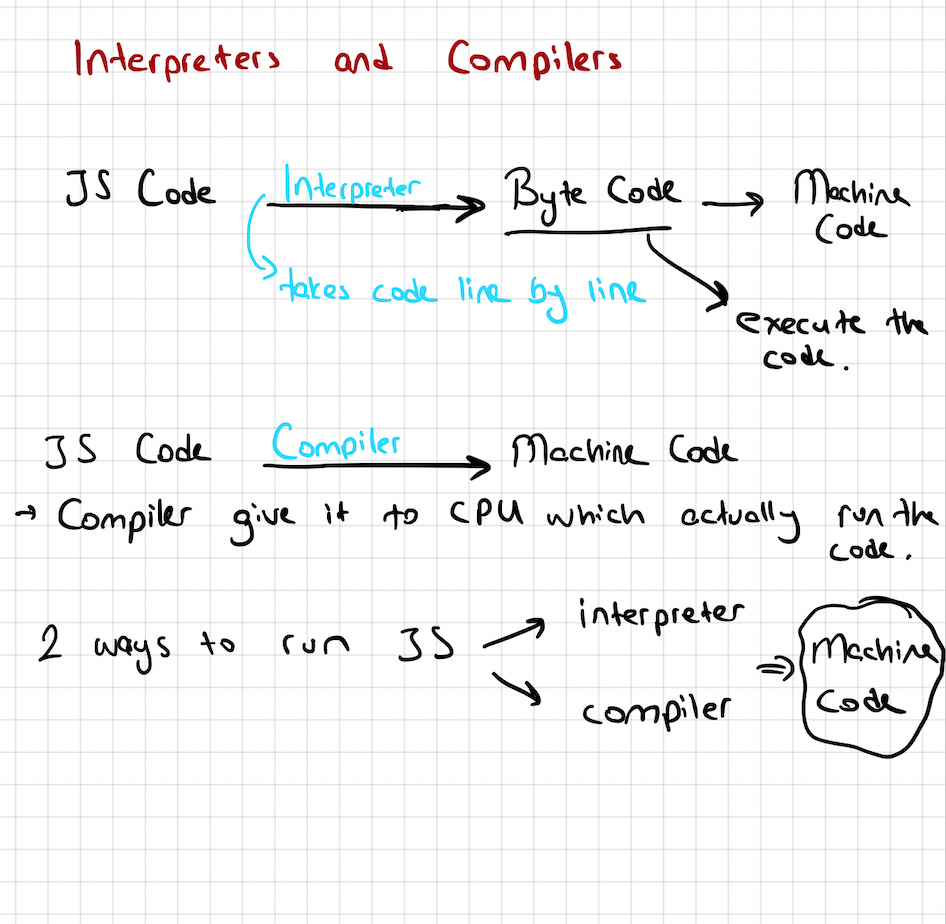 Interpreters and Compilers
JS Code Interpreter Byte Code → Machine
Code
takes code line by line
execute the
code.
JS Code Compiler Machine Code
→ Compiler give it to CPU which actually run the
code.
interpreter
2 ways to run JS ⇒ Machine
Code
compiler